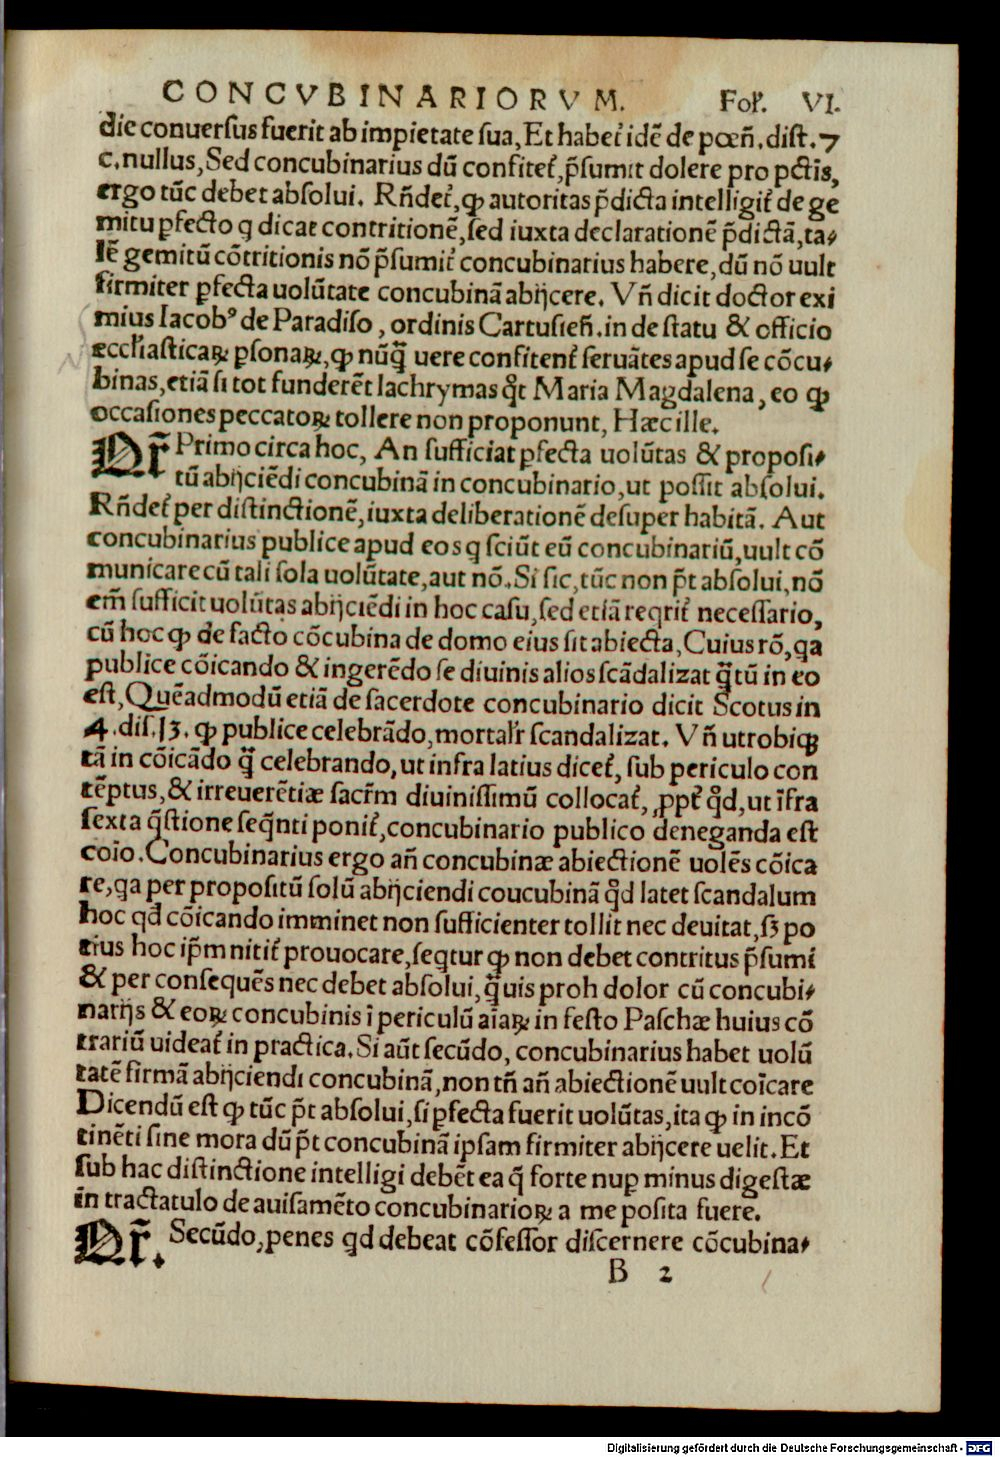 CONCVBINARIORVM. Fol'. VI.
die conuersus fuerit ab impietate sua, Et habet᷑ idẽ de pœñ. dist. 7
c. nullus, Sed concubinarius dũ confitet᷑, p̃sumit dolere pro pctĩs,
ergo tũc debet absolui. Rñdet᷑, ꝙ autoritas p̃dicta intelligit᷑ de ge
mitu ꝑfecto q dicat contritionẽ, sed iuxta declarationẽ p̃dictã, ta⸗
lẽ gemitũ cõtritionis nõ p̃sumit᷑ concubinarius habere, dũ nõ uult
firmiter ꝑfecta uolũtate concubinã abijcere. Vñ dicit doctor exi
mius Iacobꝰ de Paradiso, ordinis Cartusieñ. in de statu & officio
eccl'iasticaꝝ ꝑsonaꝝ, ꝙ nũq̃ uere confitent᷑ seruãtes apud se cõcu⸗
binas, etiã si tot funderẽt lachrymas qͦt Maria Magdalena, eo ꝙ
occasiones peccatoꝝ tollere non proponunt, Hæc ille.
Qr̃ Primo circa hoc, An sufficiat ꝑfecta uolũtas & proposi⸗
tũ abijciẽdi concubinã in concubinario, ut possit absolui.
Rñdet᷑ per distinctionẽ, iuxta deliberationẽ desuper habitã. Aut
concubinarius publice apud eos q sciũt eũ concubinariũ, uult cõ
municare cũ tali sola uolũtate, aut nõ. Si sic, tũc non p̃t absolui, nõ
em̃ sufficit uolũtas abijciẽdi in hoc casu, sed etiã reqrit᷑ necessario,
cũ hoc ꝙ de facto cõcubina de domo eius sit abiecta, Cuius rõ, qa
publice cõicando & ingerẽdo se diuinis alios scãdalizat q̃tũ in eo
est, Quẽadmodũ etiã de sacerdote concubinario dicit Scotus in
4. dis. 13. ꝙ publice celebrãdo, mortal'r scandalizat. Vñ utrobiqꝫ
tã in cõicãdo q̃ celebrando, ut infra latius dicet᷑, sub periculo con
tẽptus, & irreuerẽtiæ sacr̃m diuinissimũ collocat᷑, ꝓpt᷑ qd, ut ĩfra
sexta q̃stione seq̃nti ponit᷑, concubinario publico deneganda est
coĩo. Concubinarius ergo añ concubinæ abiectionẽ uolẽs cõica
re, qa per propositũ solũ abijciendi coucubinã qd latet scandalum
hoc qd cõicando imminet non sufficienter tollit nec deuitat, sꝫ po
tius hoc ip̃m nitit᷑ prouocare, seqtur ꝙ non debet contritus p̃sumi
& per consequẽs nec debet absolui, q̃uis proh dolor cũ concubi⸗
narijs & eoꝝ concubinis ĩ periculũ aĩaꝝ in festo Paschæ huius cõ
trariũ uideat᷑ in practica. Si aũt secũdo, concubinarius habet uolũ
tatẽ firmã abijciendi concubinã, non tñ añ abiectionẽ uult coĩcare
Dicendũ est ꝙ tũc p̃t absolui, si ꝑfecta fuerit uolũtas, ita ꝙ in incõ
tinẽti sine mora dũ p̃t concubinã ipsam firmiter abijcere uelit. Et
sub hac distinctione intelligi debẽt ea q̃ forte nuꝑ minus digestæ
in tractatulo de auisamẽto concubinarioꝝ a me posita fuere.
Qr̃. Secũdo, penes qd debeat cõfessor discernere cõcubina⸗
B 2
Digitalisierung gefördert durch die Deutsche Forschungsgemeinschaft - DFG